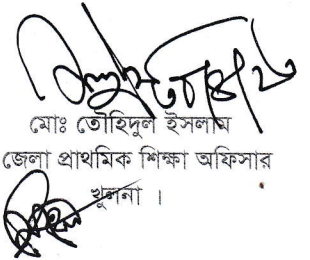 মোঃ তৌহিদুল ইসলাম
জেলা প্রাথমিক শিক্ষা অফিসার
খুলনা ।